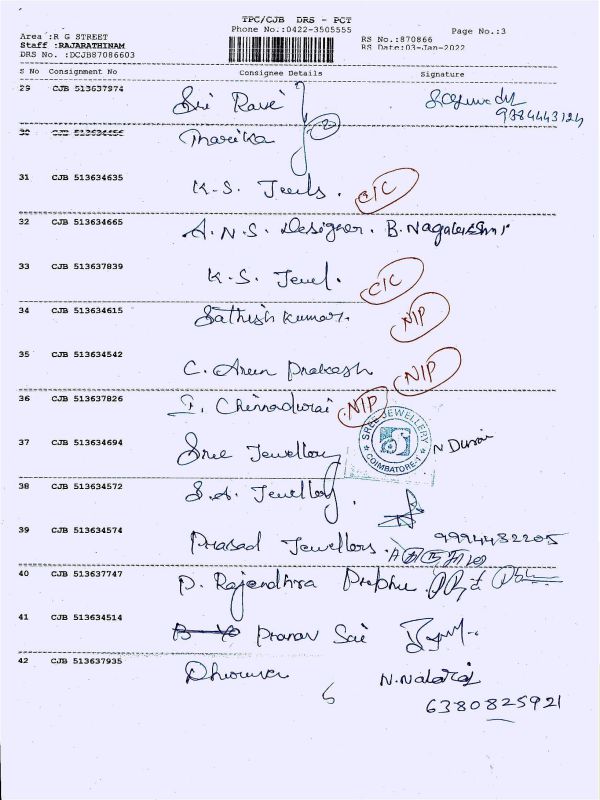 TPC/CJB DRS - PCT
Phone No.:0422-3505555
Area :R G STREET
Staff :RAJARATHINAM
DRS No. :DCJB87086603
RS No.:870866
RS Date:03-Jan-2022
Page No.:3
S No Consignment No Consignee Details Signature
29 CJB 513637974 Sri Ravi
9384443124
30 CJB Tharika
31 CJB 513634635 K.S. Jewels. C/C
32 CJB 513634665 A.N.S. Designer. B. Nagalakshmi
33 CJB 513637839 K.S. Jewel. C/C
34 CJB 513634615 Sathish Kumar. NIP
35 CJB 513634542 C. Arun Prakash NIP
36 CJB 513637826 I. Chinnadurai NIP
37 CJB 513634694 Sree Jewellery N Durai
SREE JEWELLERY
COIMBATORE-1
38 CJB 513634572 S.A. Jewellery.
39 CJB 513634574 Prasad Jewellers. 9994482205
40 CJB 513637747 P. Rajendhra Prabhu
41 CJB 513634514 Pranav Sai
42 CJB 513637935 N. Nataraj
6380825921